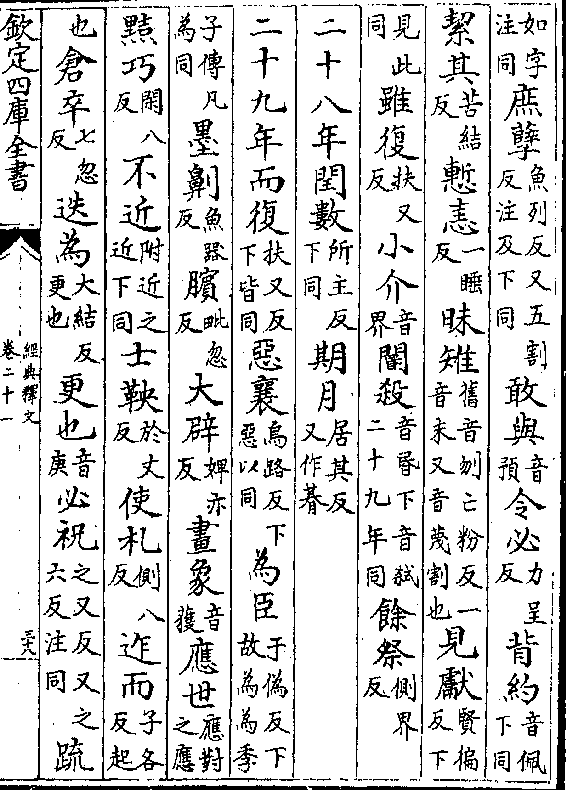 如字注同庶孽魚列反又五割反注及下同敢與音預令必力呈反背約音佩下同
絜其苦結反慙恚一睡反昧雉舊音刎亡粉反一音末又音蔑割也見獻賢徧反下
見此同雖復扶又反小介音界閽殺音昏下音弒二十九年同餘祭側界反
二十八年閏數所主反下同期月居其反又作朞
二十九年而復扶又反下皆同惡襄烏路反下惡以同為臣于偽反下故為為季
子傳凡為同墨劓魚器反臏毗忽反大辟婢亦反畫象音獲應世應對之應
黠巧閑八反不近附近之近下同士鞅於丈反使札側八反迮而子各反起
也倉卒七忽反迭為大結反更也更也音庚必祝之又反又之六反注同䟽
欽定四庫全書
經典釋文
卷二十一